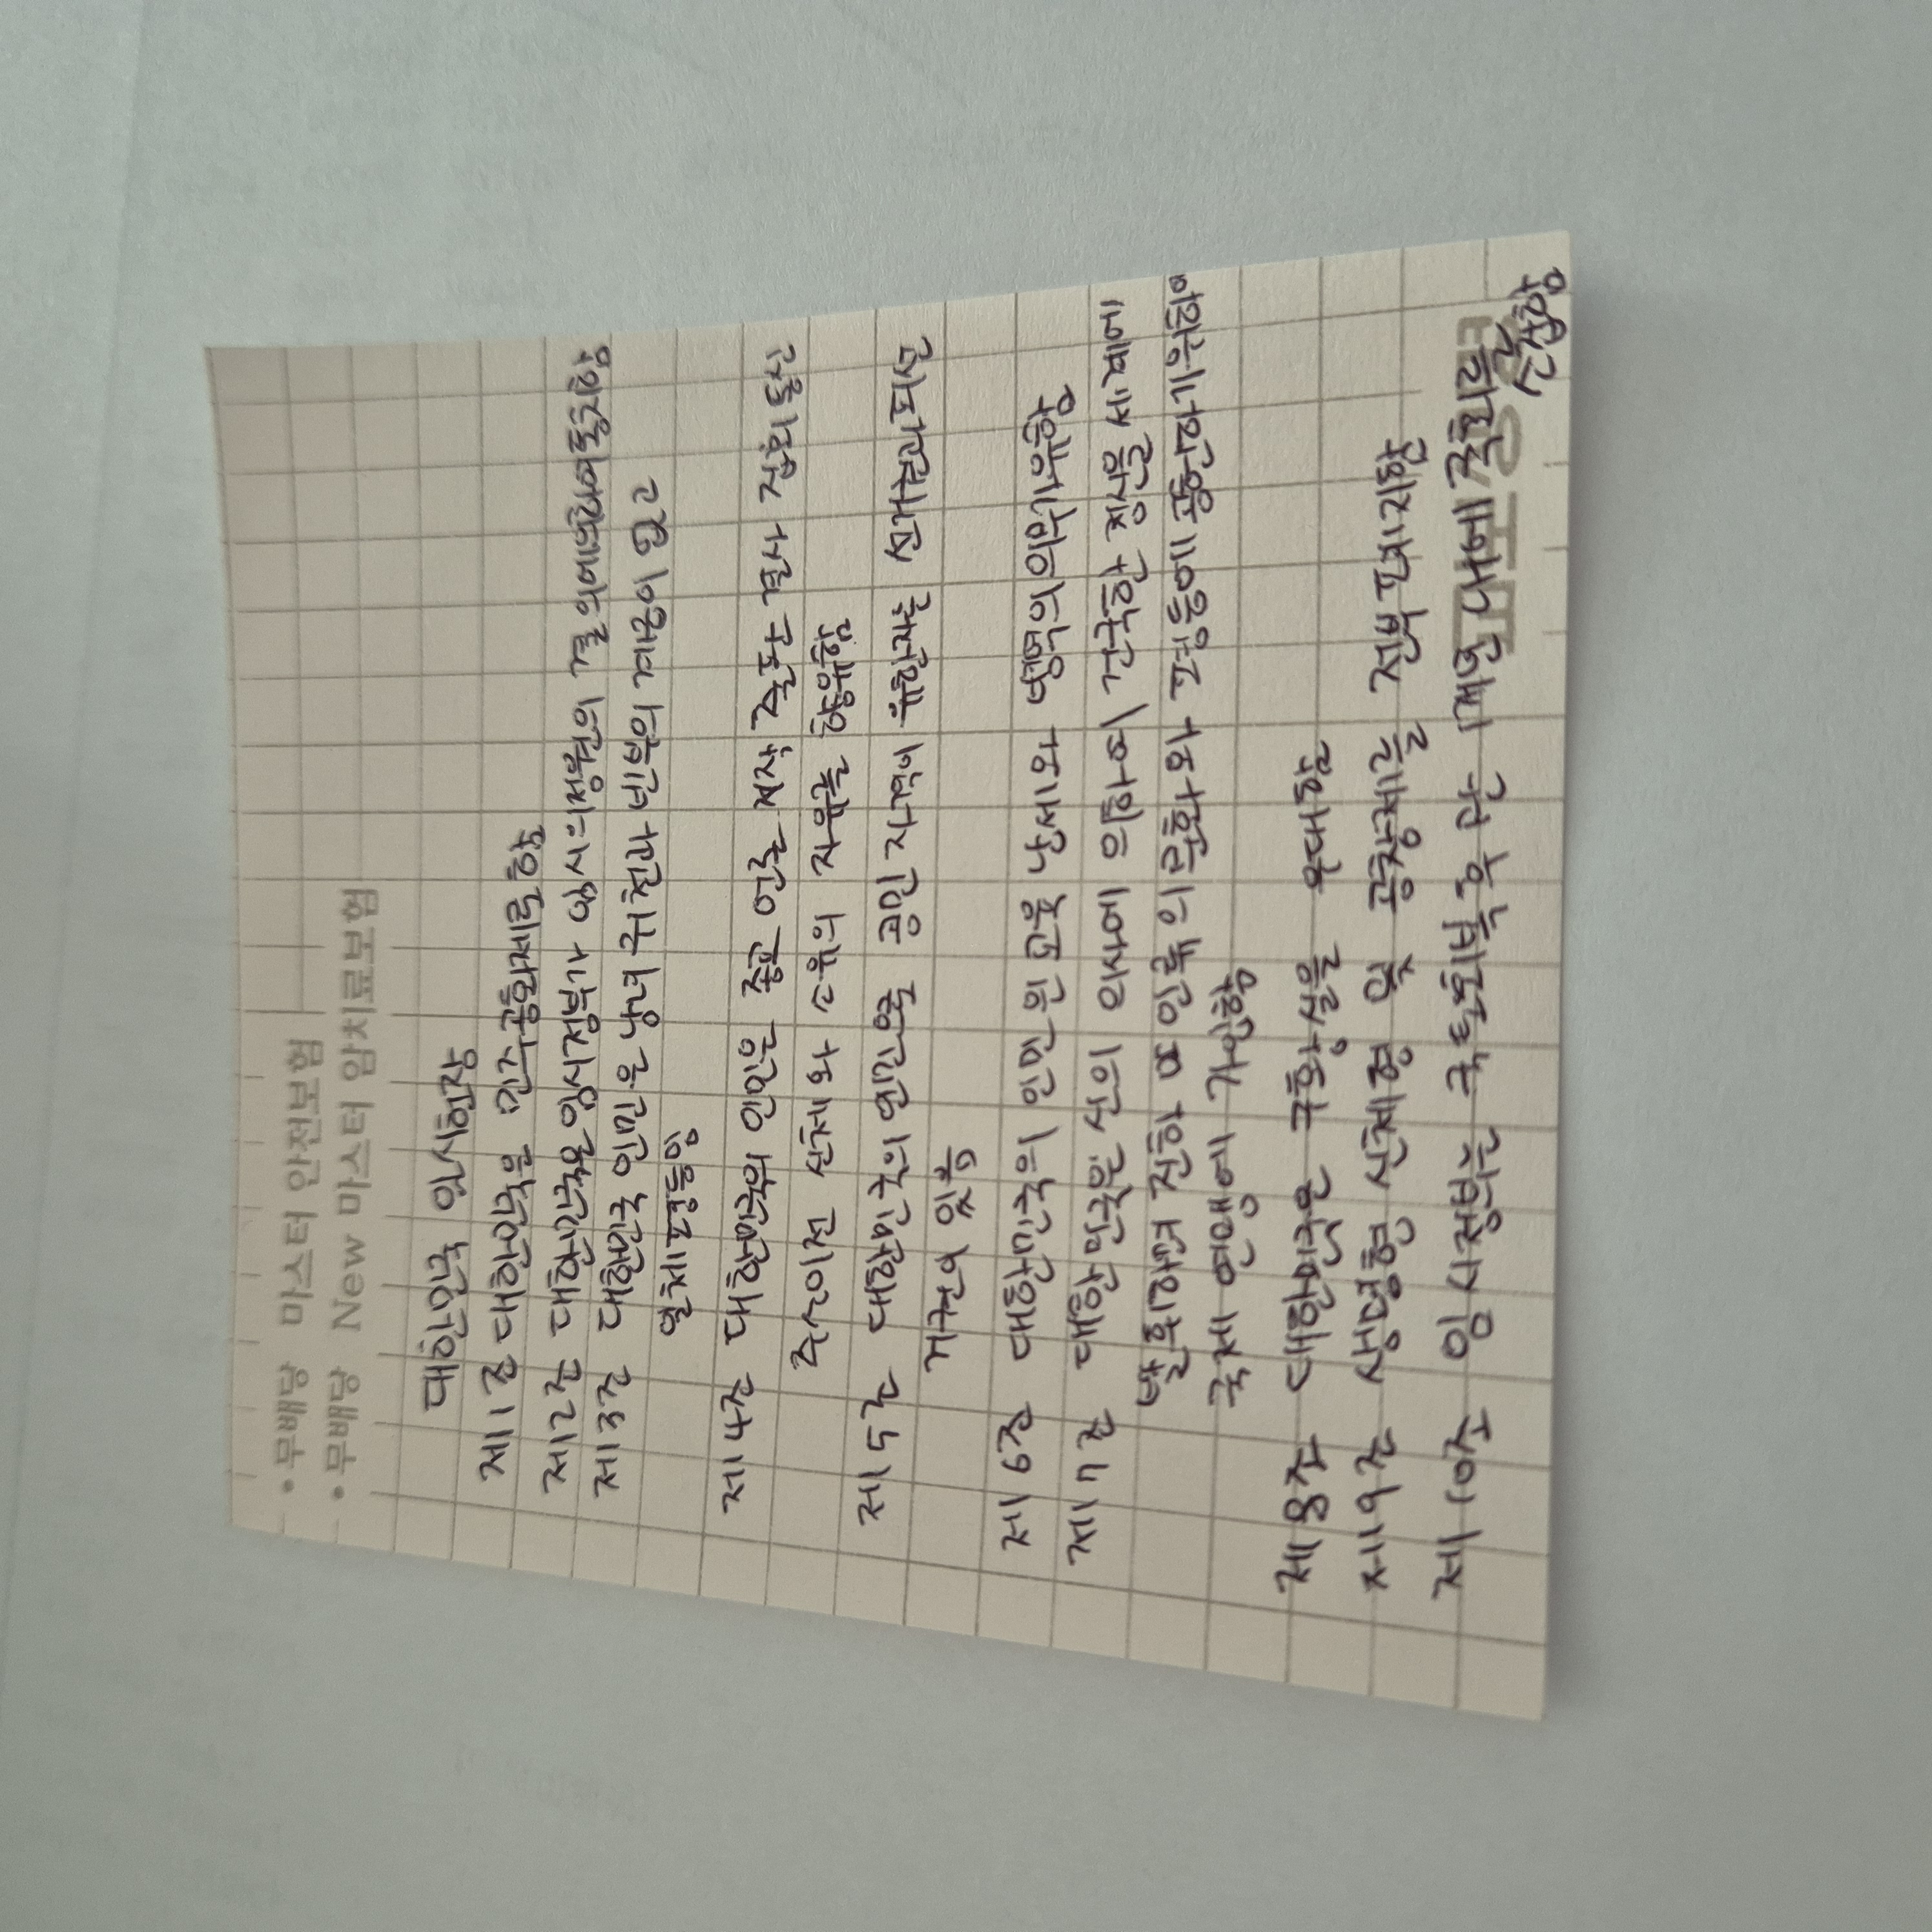 • 무배당 마스터 안전보험
• 무배당 New 마스터 암치료보험
대한민국 임시헌장
제1조 대한민국은 민주공화제로함
제2조 대한민국은임시정부가 임시의정원의 결의에의하여통치함
제3조 대한민국 인민은 남녀 귀천과 빈부의 계급이 없고
일체평등임
제4조 대한민국의 인민은 종교 언론 저작 출판 결사 집회 통신
주소이전 신체와 소유의 자유를 향유함
제5조 대한민국의 인민으로 공민 자격이 유한자는 선거권과피선
거권이 있음
제6조 대한민국의 인민은 교육 납세와 병역의의무가있음
제7조 대한민국은 신의 의사에 의하야 건국한 정신을 세계에
발휘하며 진하야 인류의 문화와 평등에 공헌하기위하야
국제 연맹에 가입함
제8조 대한민국은 구황실을 우대함
제9조 생명형 신체형 및 공창제를 전부폐지함
제10조 임시정부는 국토회복 후 만 1년 내에 국회를
소집함